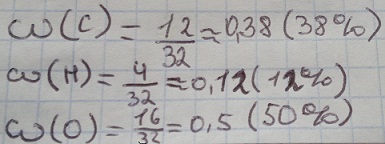 ω(C) = 12/32 ≈ 0,38 (38%)
ω(H) = 4/32 ≈ 0,12 (12%)
ω(O) = 16/32 = 0,5 (50%)